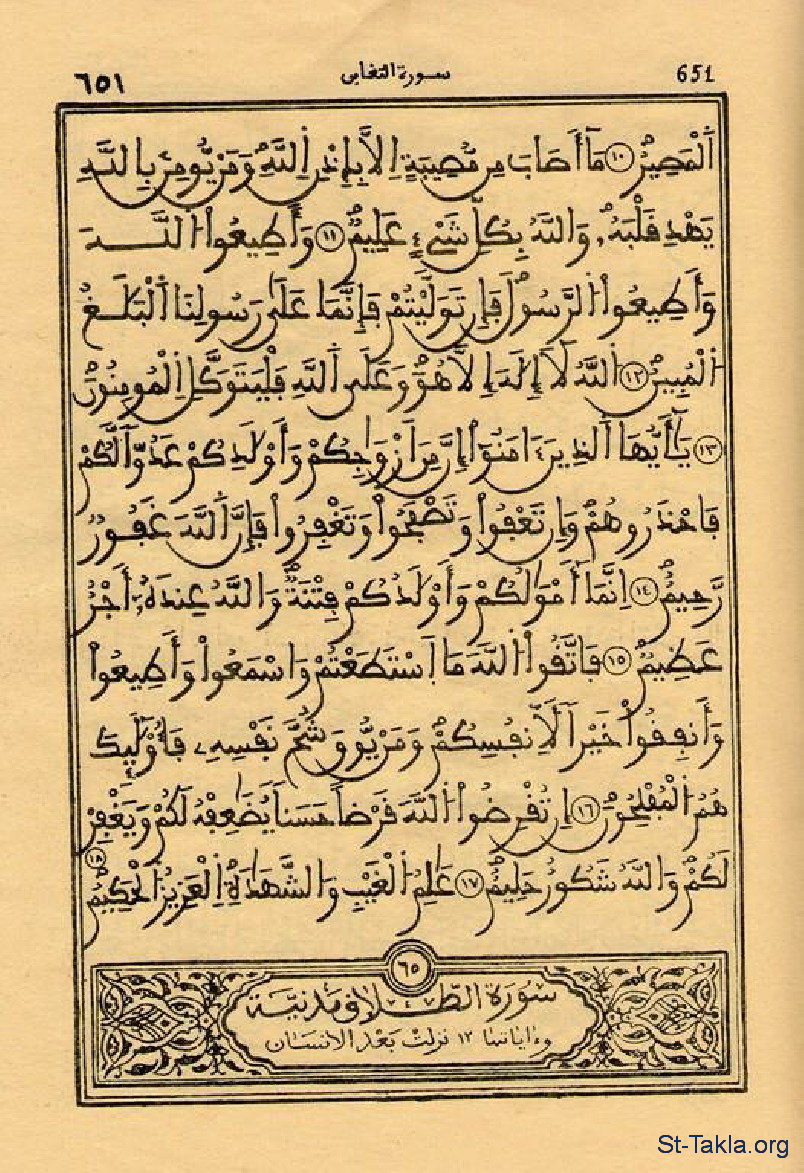 ٦٥١ سورة التغابن 651
اَ۬لْمَصِيرُۖ ١٠ مَآ أَصَابَ مِن مُّصِيبَةٍ اِلَّا بِإِذْنِ اِ۬للَّهِۖ وَمَنْ يُّومِنۢ بِاللَّهِ
يَهْدِ قَلْبَهُۥۖ وَاللَّهُ بِكُلِّ شَےْءٍ عَلِيمٞۖ ١١ وَأَطِيعُواْ اُ۬للَّهَ
وَأَطِيعُواْ اُ۬لرَّسُولَۖ فَإِن تَوَلَّيْتُمْ فَإِنَّمَا عَلَىٰ رَسُولِنَا اَ۬لْبَلَٰغُ
اُ۬لْمُبِينُۖ ١٢ اُ۬للَّهُ لَآ إِلَٰهَ إِلَّا هُوَۖ وَعَلَى اَ۬للَّهِ فَلْيَتَوَكَّلِ اِ۬لْمُومِنُونَۖ
١٣ يَٰٓأَيُّهَا اَ۬لذِينَ ءَامَنُوٓاْ إِنَّ مِنَ اَزْوَٰجِكُمْ وَأَوْلَٰدِكُمْ عَدُوّاٗ لَّكُمْ
فَاحْذَرُوهُمْۖ وَإِن تَعْفُواْ وَتَصْفَحُواْ وَتَغْفِرُواْ فَإِنَّ اَ۬للَّهَ غَفُورٞ
رَّحِيمٌۖ ١٤ اِنَّمَآ أَمْوَٰلُكُمْ وَأَوْلَٰدُكُمْ فِتْنَةٞۖ وَاللَّهُ عِندَهُۥٓ أَجْرٌ
عَظِيمٞۖ ١٥ فَاتَّقُواْ اُ۬للَّهَ مَا اَ۪سْتَطَعْتُمْ وَاسْمَعُواْ وَأَطِيعُواْ
وَأَنفِقُواْ خَيْراٗ لِّأَنفُسِكُمْۖ وَمَنْ يُّوقَ شُحَّ نَفْسِهِۦ فَأُوْلَٰٓئِكَ
هُمُ اُ۬لْمُفْلِحُونَۖ ١٦ إِن تُقْرِضُواْ اُ۬للَّهَ قَرْضاً حَسَناٗ يُضَٰعِفْهُ لَكُمْ وَيَغْفِرْ
لَكُمْۖ وَاللَّهُ شَكُورٌ حَلِيمٌۖ ١٧ عَٰلِمُ اُ۬لْغَيْبِ وَالشَّهَٰدَةِ اِ۬لْعَزِيزُ اُ۬لْحَكِيمُۖ ١٨
٦٥
سورة الطلاق مدنية
وءاياتها ١٢ نزلت بعد الانسان
St-Takla.org